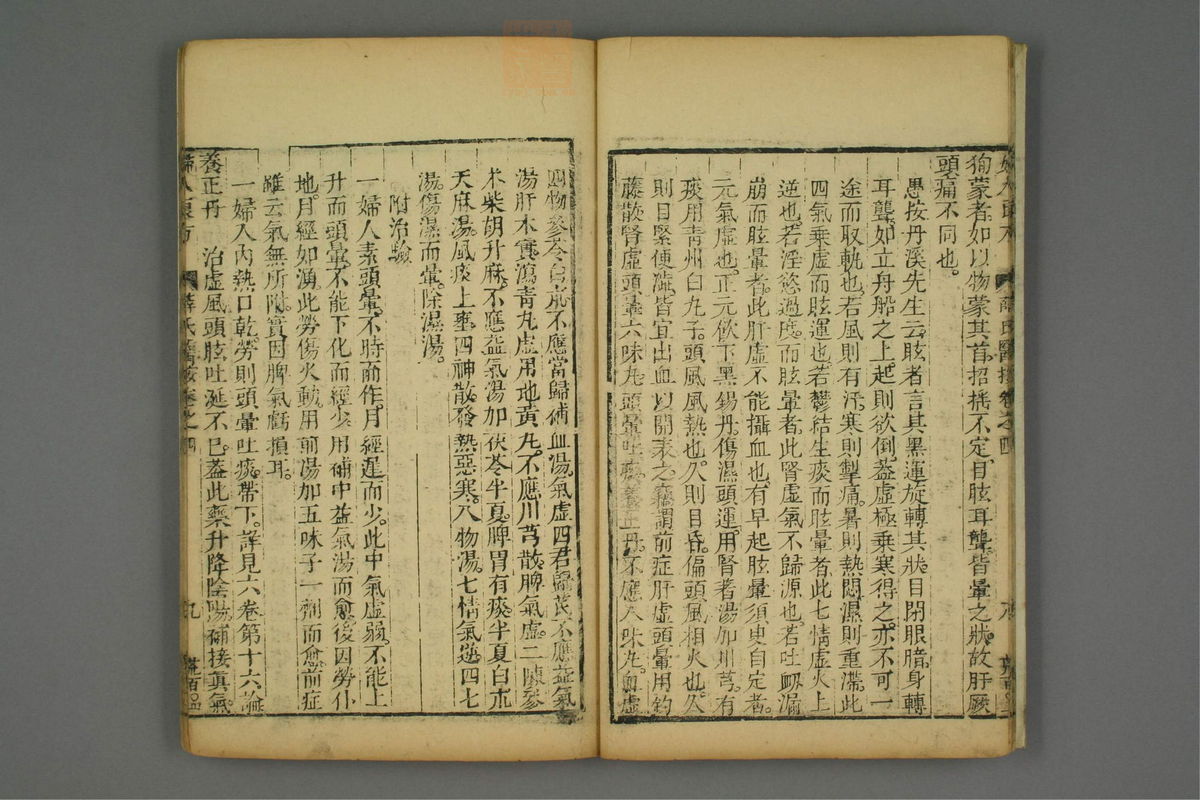 徇蒙者如以物蒙其首招搖不定目眩耳聾皆暈之狀故肝厥
頭痛不同也。
愚按丹溪先生云眩者言其黑運旋轉其狀目閉眼暗身轉
耳聾如立舟船之上起則欲倒蓋虛極乘寒得之亦不可一
途而取軌也若風則有汗寒則掣痛暑則熱悶濕則重滯此
四氣乘虛而眩運也若鬱結生痰而眩暈者此七情虛火上
逆也若淫慾過度而眩暈者此腎虛氣不歸源也若吐衂漏
崩而眩暈者此肝虛不能攝血也有早起眩暈須臾自定者
元氣虛也正元飲下黑錫丹傷濕頭運用腎着湯加川芎有
痰用青州白丸子頭風風熱也久則目昏偏頭風相火也久
則目緊便澁皆宜出血以開表之竊謂前症肝虛頭暈用鈎
藤散腎虛頭暈六味丸頭暈吐痰養正丹不應八味丸血虛
四物參苓白朮不應當歸補血湯氣虛四君歸芪不應益氣
湯肝木實瀉青丸虛用地黃丸不應川芎散脾氣虛二陳參
朮柴胡升麻不應益氣湯加茯苓半夏脾胃有痰半夏白朮
天麻湯風痰上壅四神散發熱惡寒八物湯七情氣逆四七
湯傷濕而暈除濕湯。
附治驗
一婦人素頭暈不時而作月經遲而少此中氣虛弱不能上
升而頭暈不能下化而經少用補中益氣湯而愈後因勞仆
地月經如湧此勞傷火動用前湯加五味子一劑而愈前症
雖云氣無所附實因脾氣虧損耳
一婦人內熱口乾勞則頭暈吐痰帶下詳見六卷第十六論
養正丹　治虛風頭眩吐涎不已蓋此藥升降陰陽補接真氣
婦人良方　薛氏醫按卷之四　九